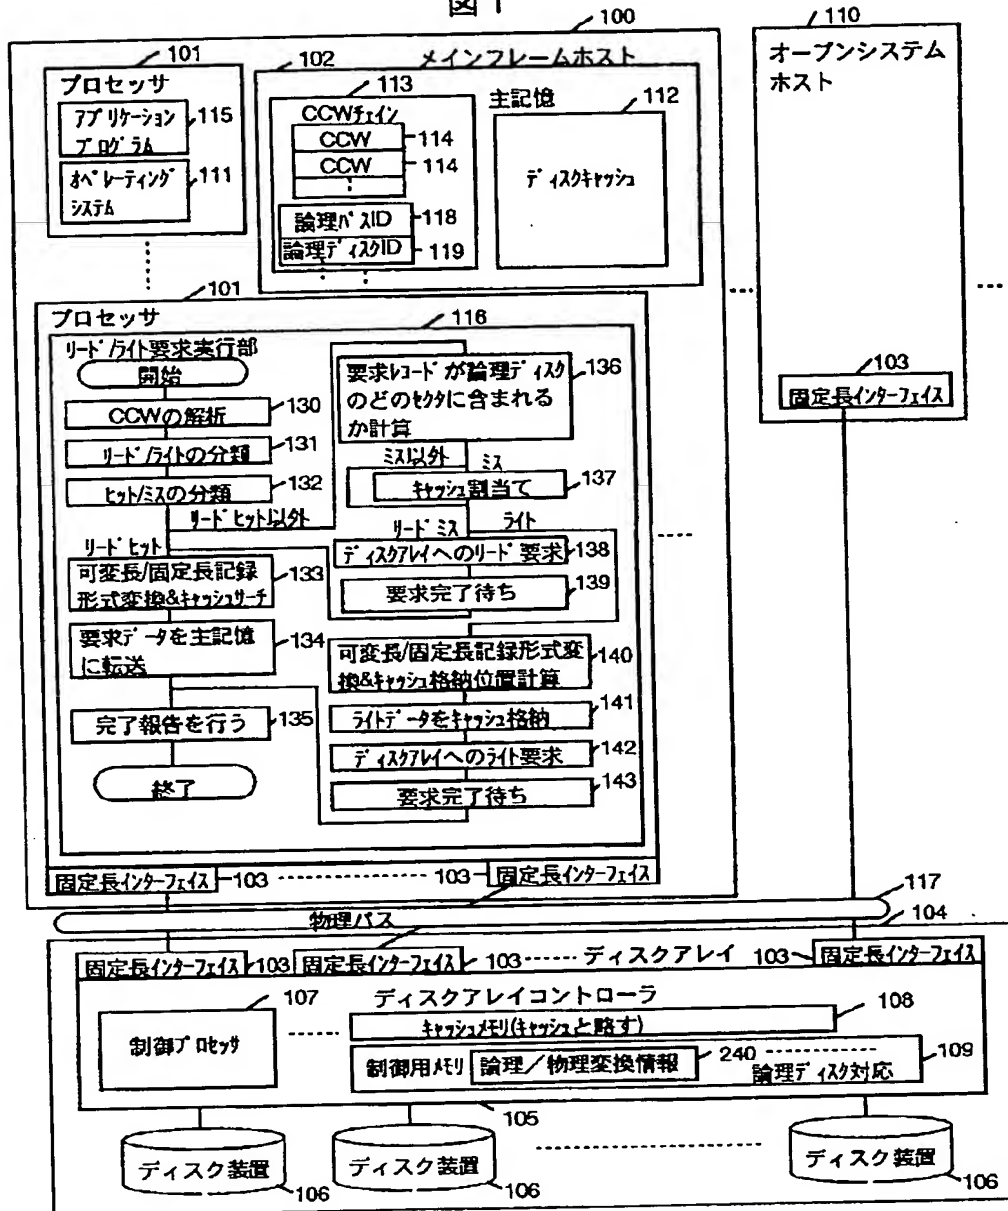 図1
100
110
101
プロセッサ
アプリケーション
プログラム
115
オペレーティング
システム
111
102
メインフレームホスト
113
CCWチェイン
CCW
114
CCW
114
論理パスID
118
論理ディスクID
119
主記憶
112
ディスクキャッシュ
オープンシステム
ホスト
103
固定長インターフェイス
101
プロセッサ
116
リード/ライト要求実行部
開始
CCWの解析
130
リード/ライトの分類
131
ヒット/ミスの分類
132
リードヒット以外
リードヒット
可変長/固定長記録
形式変換&キャッシュサーチ
133
要求データを主記憶
に転送
134
完了報告を行う
135
終了
要求レコードが論理ディスク
のどのセクタに含まれる
か計算
136
ミス以外
ミス
キャッシュ割当て
137
リードミス
ライト
ディスクアレイへのリード要求
138
要求完了待ち
139
可変長/固定長記録形式変
換&キャッシュ格納位置計算
140
ライトデータをキャッシュ格納
141
ディスクアレイへのライト要求
142
要求完了待ち
143
固定長インターフェイス
103
103
固定長インターフェイス
117
物理パス
104
固定長インターフェイス
103
固定長インターフェイス
103
ディスクアレイ
103
固定長インターフェイス
107
制御プロセッサ
ディスクアレイコントローラ
108
キャッシュメモリ(キャッシュと略す)
制御用メモリ
論理/物理変換情報
240
論理ディスク対応
109
105
ディスク装置
106
ディスク装置
106
ディスク装置
106